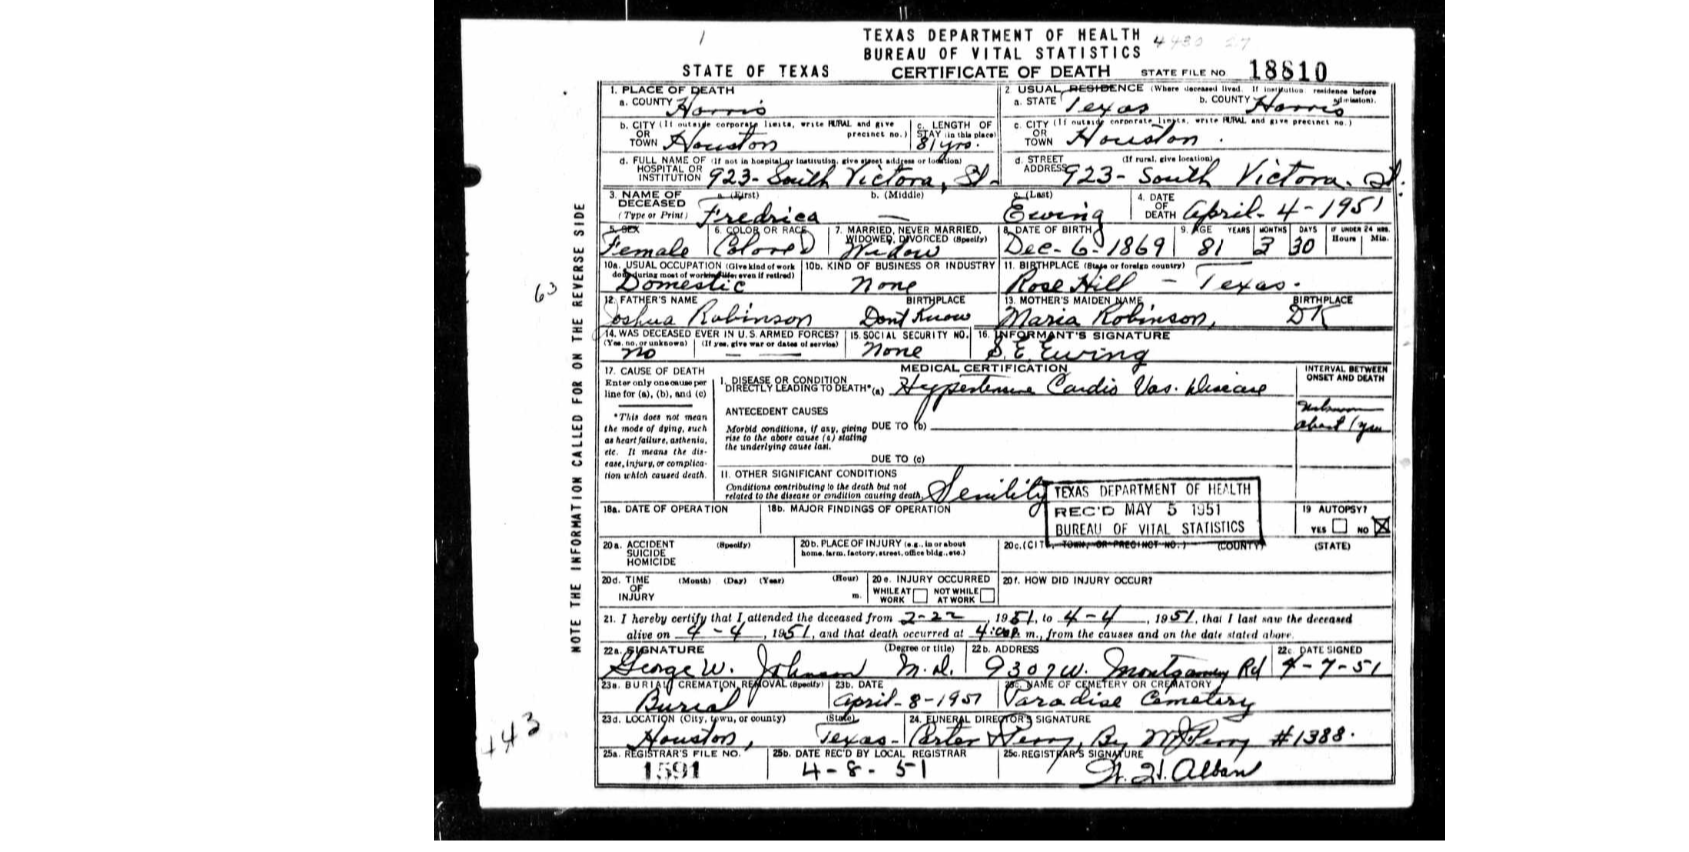 1
TEXAS DEPARTMENT OF HEALTH
BUREAU OF VITAL STATISTICS
STATE OF TEXAS CERTIFICATE OF DEATH STATE FILE NO 18610
NOTE THE INFORMATION CALLED FOR ON THE REVERSE SIDE
63
443
1. PLACE OF DEATH
a. COUNTY Harris
2 USUAL RESIDENCE (Where deceased lived. If institution: residence before admission).
a. STATE Texas b. COUNTY Harris
b. CITY (If outside corporate limits, write RURAL and give precinct no.)
OR
TOWN Houston
c. LENGTH OF
STAY (in this place)
81 yrs.
c. CITY (If outside corporate limits, write RURAL and give precinct no.)
OR
TOWN Houston.
d. FULL NAME OF (If not in hospital or institution, give street address or location)
HOSPITAL OR
INSTITUTION 923- South Victora, St-
d. STREET (If rural, give location)
ADDRESS 923- South Victora. St.
3. NAME OF DECEASED (Type or Print)
a. (First) Fredrica
b. (Middle) —
c. (Last) Ewing
4. DATE OF DEATH April-4-1951
5. SEX
Female
6. COLOR OR RACE
Colored
7. MARRIED, NEVER MARRIED, WIDOWED, DIVORCED (Specify)
Widow
8. DATE OF BIRTH
Dec-6-1869
9. AGE YEARS MONTHS DAYS IF UNDER 24 HRS. Hours Min.
81 3 30
10a. USUAL OCCUPATION (Give kind of work done during most of working life, even if retired)
Domestic
10b. KIND OF BUSINESS OR INDUSTRY
None
11. BIRTHPLACE (State or foreign country)
Rose Hill - Texas.
12. FATHER'S NAME BIRTHPLACE
Joshua Robinson Dont Know
13. MOTHER'S MAIDEN NAME BIRTHPLACE
Maria Robinson, DK
14. WAS DECEASED EVER IN U.S. ARMED FORCES?
(Yes, no, or unknown) (If yes, give war or dates of service)
no — —
15. SOCIAL SECURITY NO.
None
16. INFORMANT'S SIGNATURE
S. E. Ewing
17. CAUSE OF DEATH
Enter only one cause per
line for (a), (b), and (c)
*This does not mean
the mode of dying, such
as heart failure, asthenia,
etc. It means the dis-
ease, injury, or complica-
tion which caused death.
MEDICAL CERTIFICATION
INTERVAL BETWEEN
ONSET AND DEATH
I. DISEASE OR CONDITION
DIRECTLY LEADING TO DEATH* (a) Hypertensive Cardio Vas. Disease
Unknown
about 1 yr
ANTECEDENT CAUSES
Morbid conditions, if any, giving
rise to the above cause (a) stating
the underlying cause last.
DUE TO (b)
DUE TO (c)
11. OTHER SIGNIFICANT CONDITIONS
Conditions contributing to the death but not
related to the disease or condition causing death. Senility
TEXAS DEPARTMENT OF HEALTH
REC'D MAY 5 1951
BUREAU OF VITAL STATISTICS
18a. DATE OF OPERATION
18b. MAJOR FINDINGS OF OPERATION
19 AUTOPSY?
YES NO X
20a. ACCIDENT (Specify)
SUICIDE
HOMICIDE
20b. PLACE OF INJURY (e.g., in or about
home, farm, factory, street, office bldg., etc.)
20c. (CITY, TOWN, OR PRECINCT NO.) (COUNTY) (STATE)
20d. TIME (Month) (Day) (Year) (Hour)
OF
INJURY m.
20e. INJURY OCCURRED
WHILE AT WORK NOT WHILE AT WORK
20f. HOW DID INJURY OCCUR?
21. I hereby certify that I attended the deceased from 2-22, 1951, to 4-4, 1951, that I last saw the deceased
alive on 4-4, 1951, and that death occurred at 4:00 P. m., from the causes and on the date stated above.
22a. SIGNATURE (Degree or title)
George W. Johnson M.D.
22b. ADDRESS
9307 W. Montgomery Rd
22c. DATE SIGNED
4-7-51
23a. BURIAL, CREMATION, REMOVAL (Specify)
Burial
23b. DATE
April-8-1951
23c. NAME OF CEMETERY OR CREMATORY
Paradise Cemetery
23d. LOCATION (City, town, or county) (State)
Houston, Texas-
24. FUNERAL DIRECTOR'S SIGNATURE
Carter Perry, By Perry #1388.
25a. REGISTRAR'S FILE NO.
1591
25b. DATE REC'D BY LOCAL REGISTRAR
4-8-51
25c. REGISTRAR'S SIGNATURE
Alban